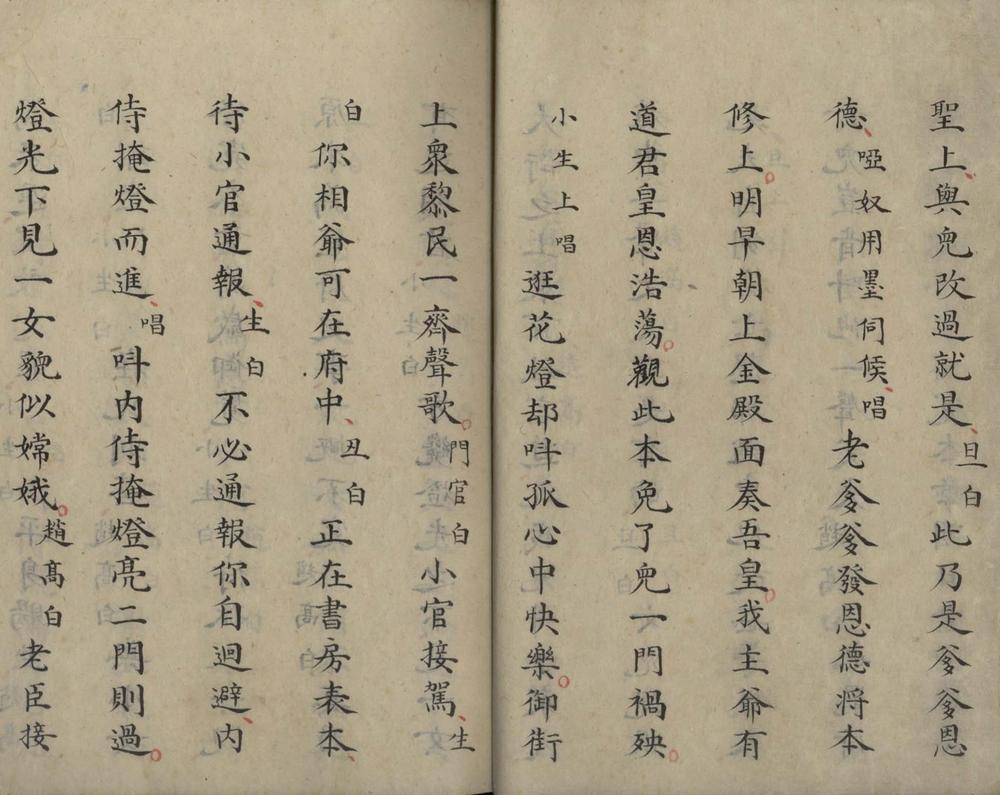 聖上、與皃改過就是、旦白此乃是爹爹恩
德、啞奴用墨伺候、唱老爹爹發恩德将本
修上。明早朝上金殿面奏吾皇。我主爺有
道君皇恩浩蕩。觀此本免了皃一門禍殃。
小生上唱逛花燈却呌孤心中快樂。御街
上衆黎民一齊聲歌。門官白小官接駕、生
白你相爺可在府中、丑白正在書房表本、
待小官通報、生白不必通報你自迴避、内
侍掩燈而進、唱呌内侍掩燈亮二門則過。
燈光下見一女貌似嫦娥。趙髙白老臣接